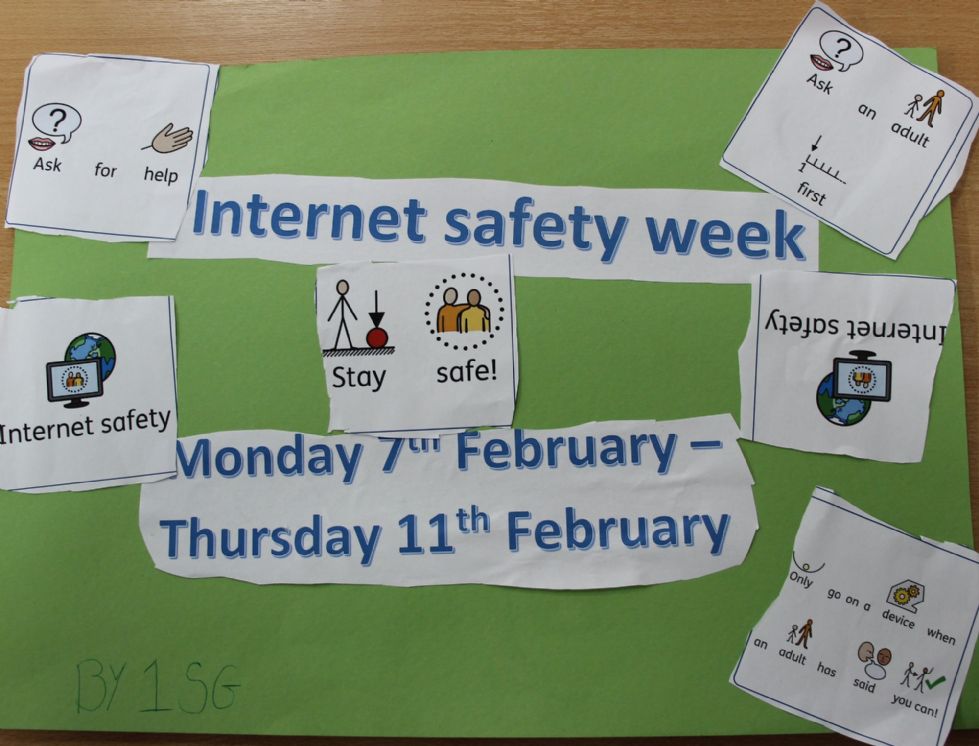 Ask for help
Ask an adult
1
first
Internet safety week
Internet safety
Stay safe!
Internet safety
Monday 7th February –
Thursday 11th February
Only go on a device when
an adult has said you can!
BY 1SG